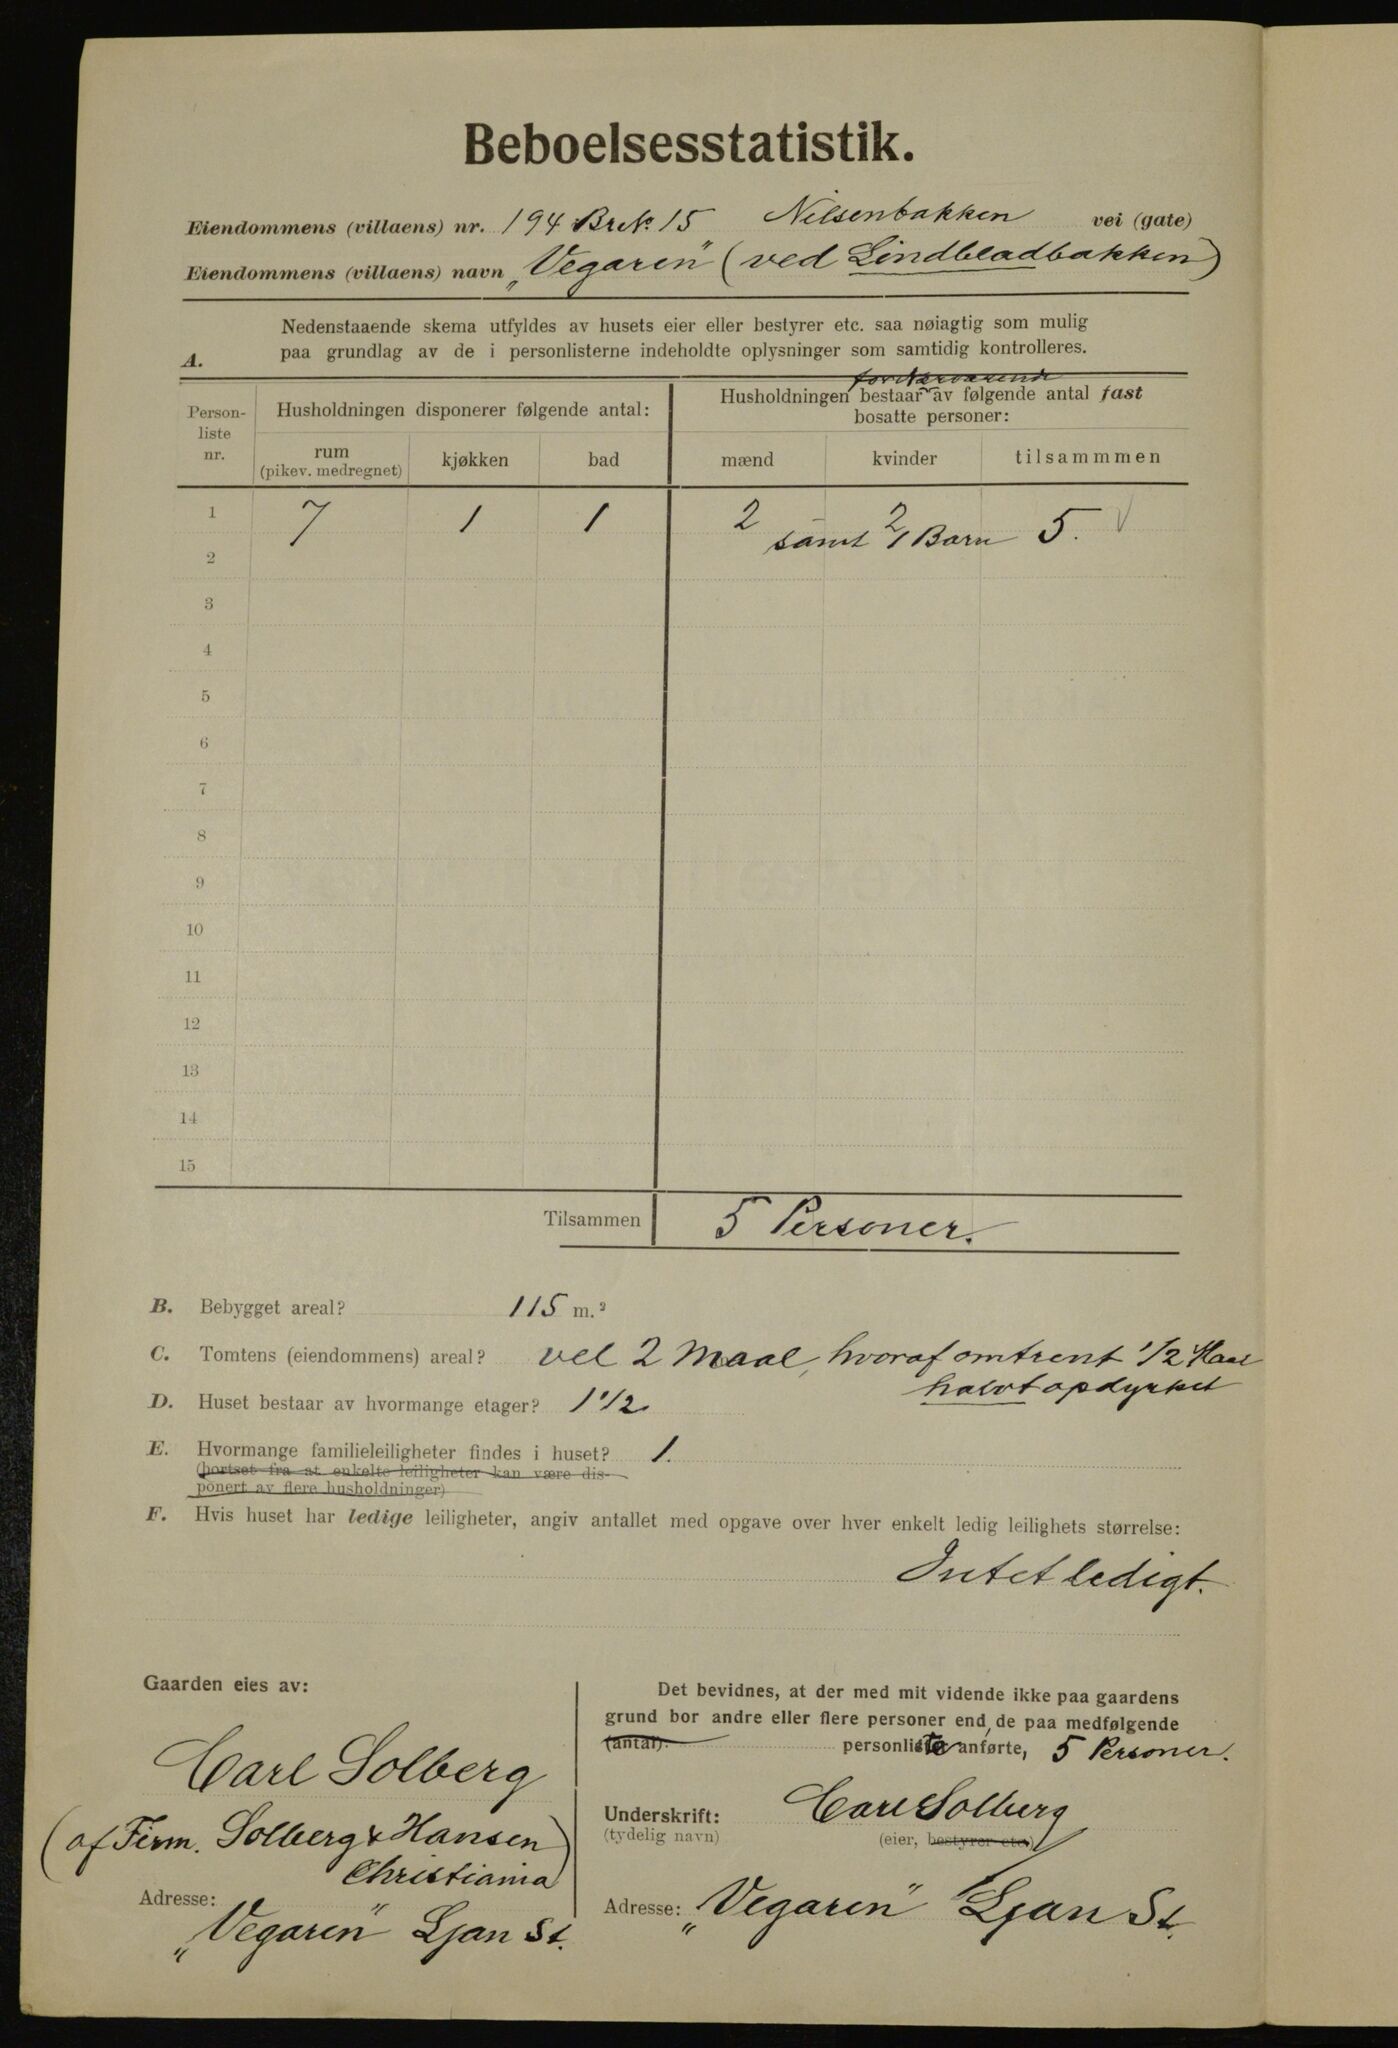 Beboelsesstatistik.
Eiendommens (villaens) nr. 194 Br No. 15 Nilsenbakken vei (gate)
Eiendommens (villaens) navn „Vegaren“ (ved Lindbladbakken)
A.
Nedenstaaende skema utfyldes av husets eier eller bestyrer etc. saa nøiagtig som mulig
paa grundlag av de i personlisterne indeholdte oplysninger som samtidig kontrolleres.
Person-
liste
nr.
Husholdningen disponerer følgende antal:
rum
(pikev. medregnet)
kjøkken
bad
for Nærværende
Husholdningen bestaar av følgende antal fast
bosatte personer:
mænd
kvinder
tilsammmen
1 7 1 1 2 2 5.
samt 1 Barn
2
3
4
5
6
7
8
9
10
11
12
13
14
15
Tilsammen 5 Personer.
B. Bebygget areal? 115 m.²
C. Tomtens (eiendommens) areal? vel 2 Maal, hvoraf omtrent 1/2 Maal
halvt opdyrket
D. Huset bestaar av hvormange etager? 1 1/2
E. Hvormange familieleiligheter findes i huset? 1.
(bortset fra at enkelte leiligheter kan være dis-
ponert av flere husholdninger)
F. Hvis huset har ledige leiligheter, angiv antallet med opgave over hver enkelt ledig leilighets størrelse:
Intet ledigt.
Gaarden eies av:
Carl Solberg
(af Firm. Solberg & Hansen)
Christiania
Adresse:
„Vegaren“ Ljan St.
Det bevidnes, at der med mit vidende ikke paa gaardens
grund bor andre eller flere personer end, de paa medfølgende
(antal) personliste anførte, 5 Personer.
Underskrift: Carl Solberg
(tydelig navn) (eier, bestyrer etc.)
Adresse: „Vegaren“ Ljan St.